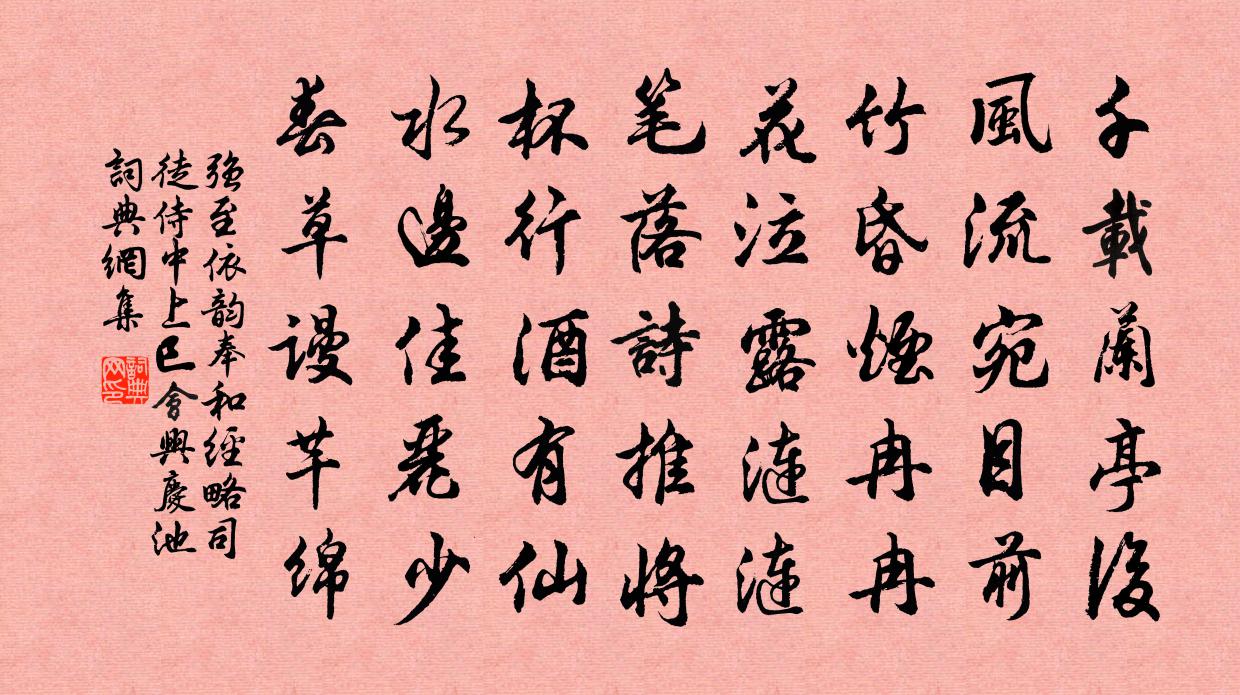 千載蘭亭後
風流宛目前
竹昏煙冉冉
花泣露漣漣
笔落詩推將
杯行酒有仙
水邊佳麗少
春草謾芊绵
强至依韵奉和經略司
徒侍中上巳會興慶池
詞典網集
詞典网印